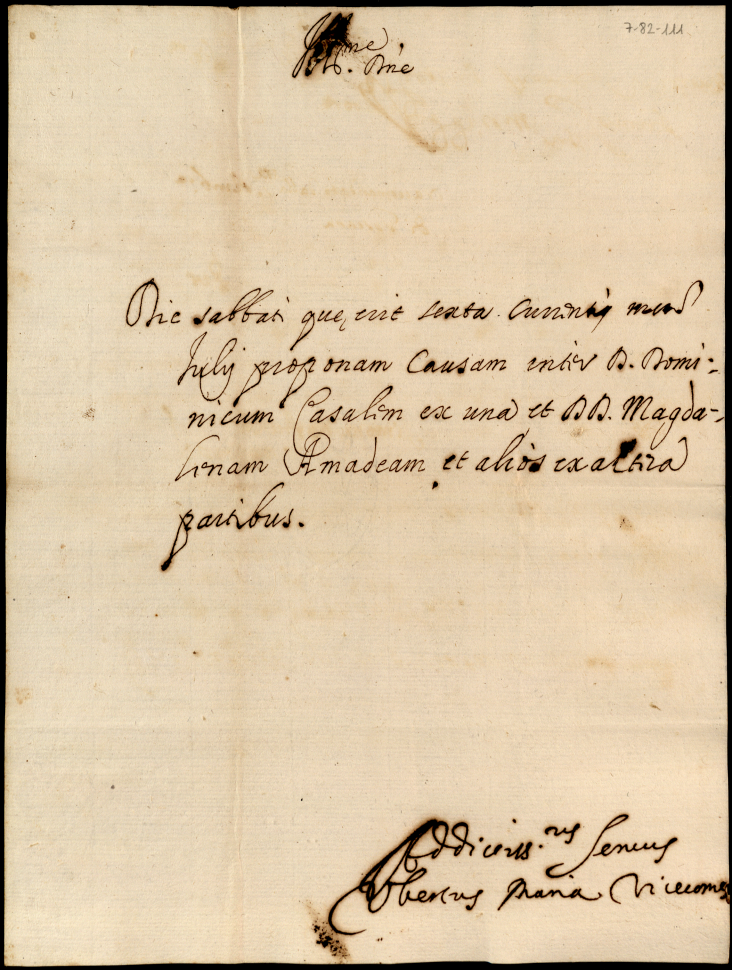 7-82-111
Ill.me
D. Dne
Die sabbati que, erit sexta currentis mens.
Julij proponam Causam inter D. Domi-
nicum Casalem ex una et DD. Magda-
lenam Amadeam et alios ex altera
partibus.
Addictiss.us Servus
Ubertus Maria Vicecomes